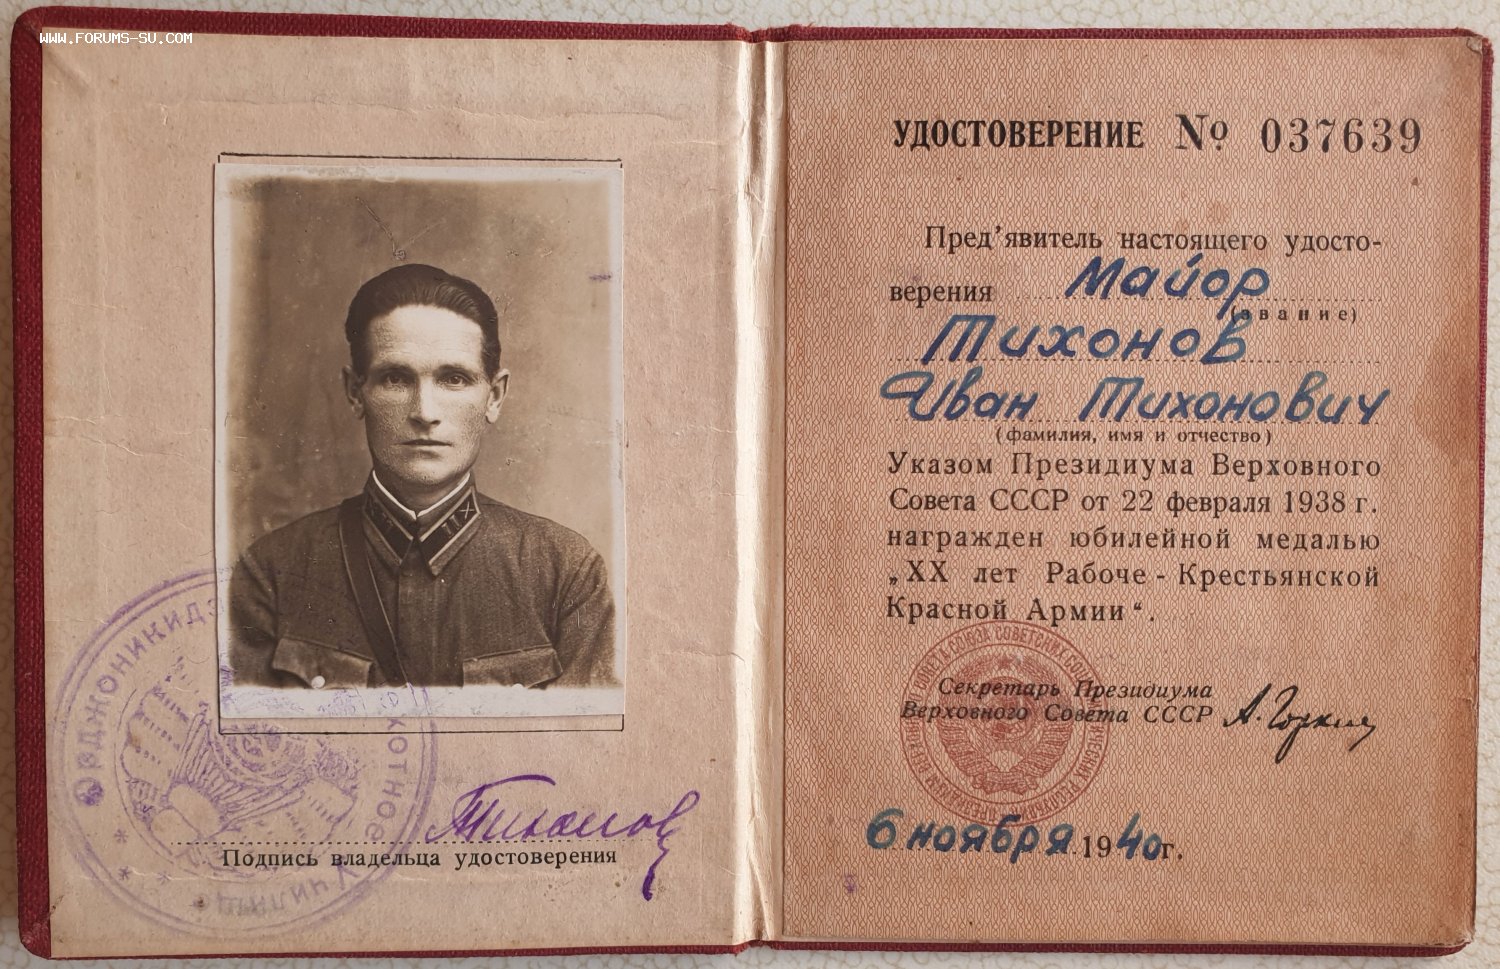 www.forums-su.com
ОРДЖОНИКИДЗ
ХОТНОЕ
УЧИЛИЩЕ
Тихонов
Подпись владельца удостоверения
УДОСТОВЕРЕНИЕ № 037639
Пред’явитель настоящего удосто-
верения Майор
(звание)
Тихонов
Иван Тихонович
(фамилия, имя и отчество)
Указом Президиума Верховного
Совета СССР от 22 февраля 1938 г.
награжден юбилейной медалью
„ХХ лет Рабоче - Крестьянской
Красной Армии“.
Секретарь Президиума
Верховного Совета СССР А. Горкин
6 ноября 1940 г.